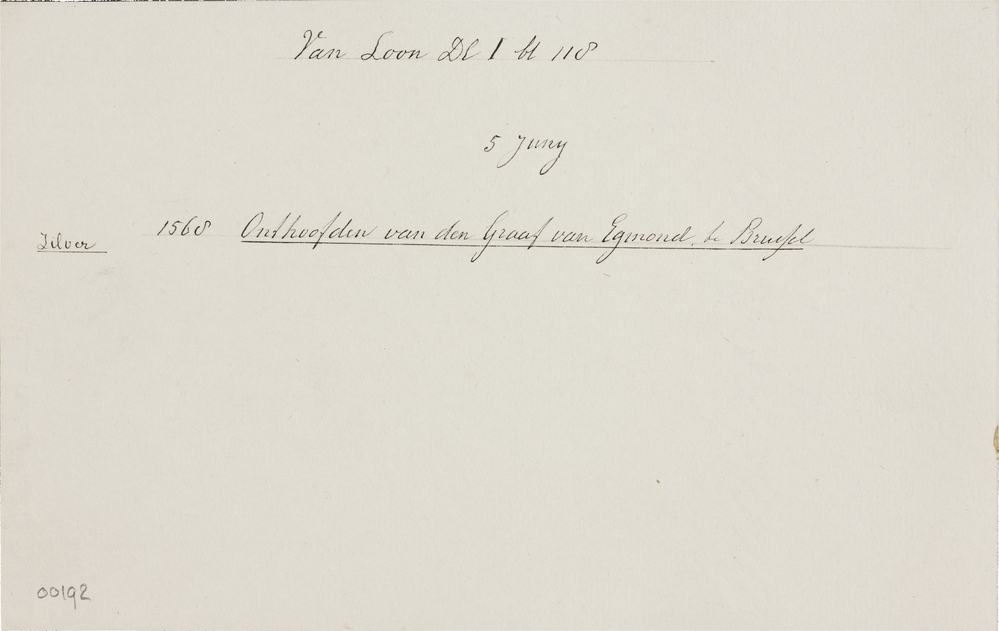 Van Loon Dl I bl 118
5 Juny
Zilver 1568 Onthoofden van den Graaf van Egmond te Brussel
00192